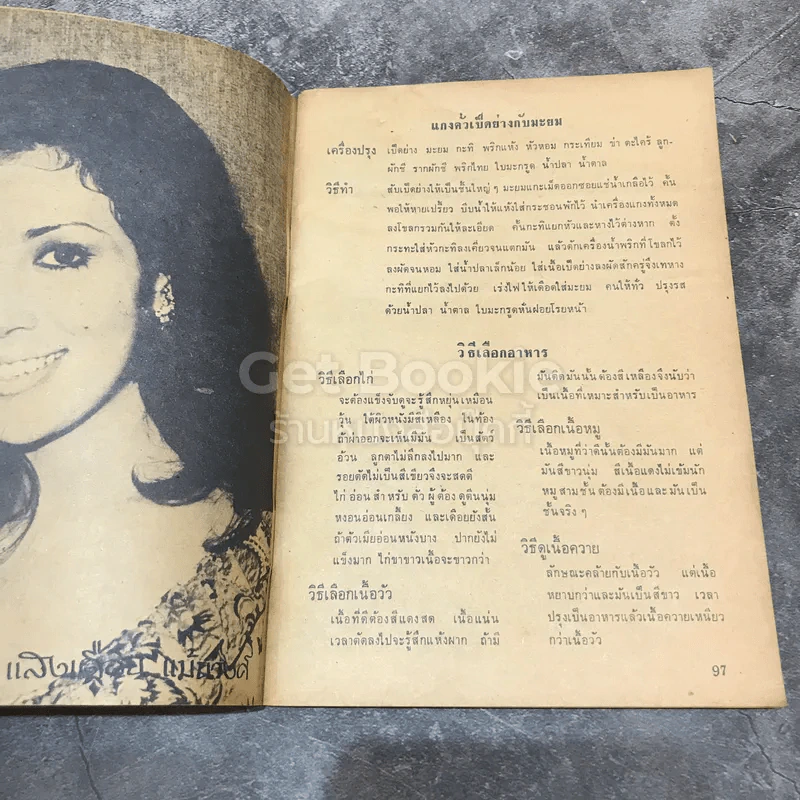 แกงคั่วเป็ดย่างกับมะยม
เครื่องปรุง เป็ดย่าง มะยม กะทิ พริกแห้ง หัวหอม กระเทียม ข่า ตะไคร้ ลูก-
ผักชี รากผักชี พริกไทย ใบมะกรูด น้ำปลา น้ำตาล
วิธีทำ สับเป็ดย่างให้เป็นชิ้นใหญ่ ๆ มะยมแกะเม็ดออกซอยแช่น้ำเกลือไว้ คั้น
พอให้หายเปรี้ยว บีบน้ำให้แห้งใส่กระชอนพักไว้ นำเครื่องแกงทั้งหมด
ลงโขลกรวมกันให้ละเอียด คั้นกะทิแยกหัวและหางไว้ต่างหาก ตั้ง
กระทะใส่หัวกะทิลงเคี่ยวจนแตกมัน แล้วตักเครื่องน้ำพริกที่โขลกไว้
ลงผัดจนหอม ใส่น้ำปลาเล็กน้อย ใส่เนื้อเป็ดย่างลงผัดสักครู่จึงเทหาง
กะทิที่แยกไว้ลงไปด้วย เร่งไฟให้เดือดใส่มะยม คนให้ทั่ว ปรุงรส
ด้วยน้ำปลา น้ำตาล ใบมะกรูดหั่นฝอยโรยหน้า
วิธีเลือกอาหาร
วิธีเลือกไก่
จะต้องแข็งจับดูจะรู้สึกหยุ่นเหมือน
วุ้น ใต้ผิวหนังมีสีเหลือง ในท้อง
ถ้าผ่าออกจะเห็นมีมัน เป็นสัตว์
อ้วน ลูกตาไม่ลึกลงไปมาก และ
รอยตัดไม่เป็นสีเขียวจึงจะสดดี
ไก่อ่อนสำหรับตัวผู้ต้องดูตีนนุ่ม
หงอนอ่อนเกลี้ยง และเดือยยังสั้น
ถ้าตัวเมียอ่อนหนังบาง ปากยังไม่
แข็งมาก ไก่ขาขาวเนื้อจะขาวกว่า
วิธีเลือกเนื้อวัว
เนื้อที่ดีต้องสีแดงสด เนื้อแน่น
เวลาตัดลงไปจะรู้สึกแห้งผาก ถ้ามี
มันติดมันนั้นต้องสีเหลืองจึงนับว่า
เป็นเนื้อที่เหมาะสำหรับเป็นอาหาร
วิธีเลือกเนื้อหมู
เนื้อหมูที่ว่าดีนั้นต้องมีมันมาก แต่
มันสีขาวนุ่ม สีเนื้อแดงไม่เข้มนัก
หมูสามชั้นต้องมีเนื้อและมันเป็น
ชั้นจริง ๆ
วิธีดูเนื้อควาย
ลักษณะคล้ายกับเนื้อวัว แต่เนื้อ
หยาบกว่าและมันเป็นสีขาว เวลา
ปรุงเป็นอาหารแล้วเนื้อควายเหนียว
กว่าเนื้อวัว
97
Get Bookie